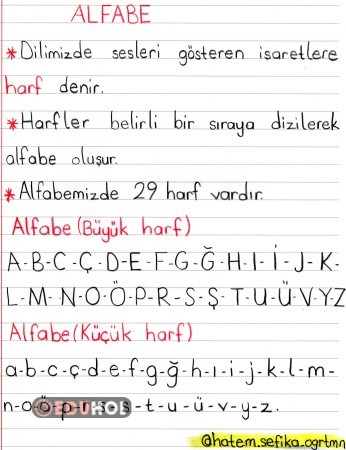 ALFABE
*Dilimizde sesleri gösteren isaretlere
harf denir.
*Harfler belirli bir sıraya dizilerek
alfabe oluşur.
*Alfabemizde 29 harf vardır.
Alfabe (Büyük harf)
A-B-C-Ç-D-E-F-G-Ğ-H-I-İ-J-K-
L-M-N-O-Ö-P-R-S-Ş-T-U-Ü-V-Y-Z
Alfabe (Küçük harf)
a-b-c-ç-d-e-f-g-ğ-h-ı-i-j-k-l-m-
n-o-ö-p-r-s-ş-t-u-ü-v-y-z.
EDUHOL
@hatem.sefika.ogrtmn